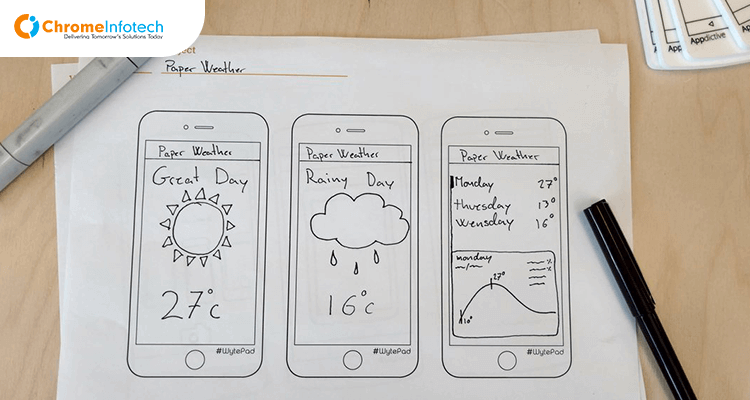 ChromeInfotech
Delivering Tomorrow's Solutions Today
Paper Weather
Paper Weather
Great Day
27°c
#WytePad
Paper Weather
Rainy Day
16°c
#WytePad
Paper Weather
Monday 27°
thursday 13°
wensday 16°
monday
27°
10°
#WytePad
Appdictive
Appdictive